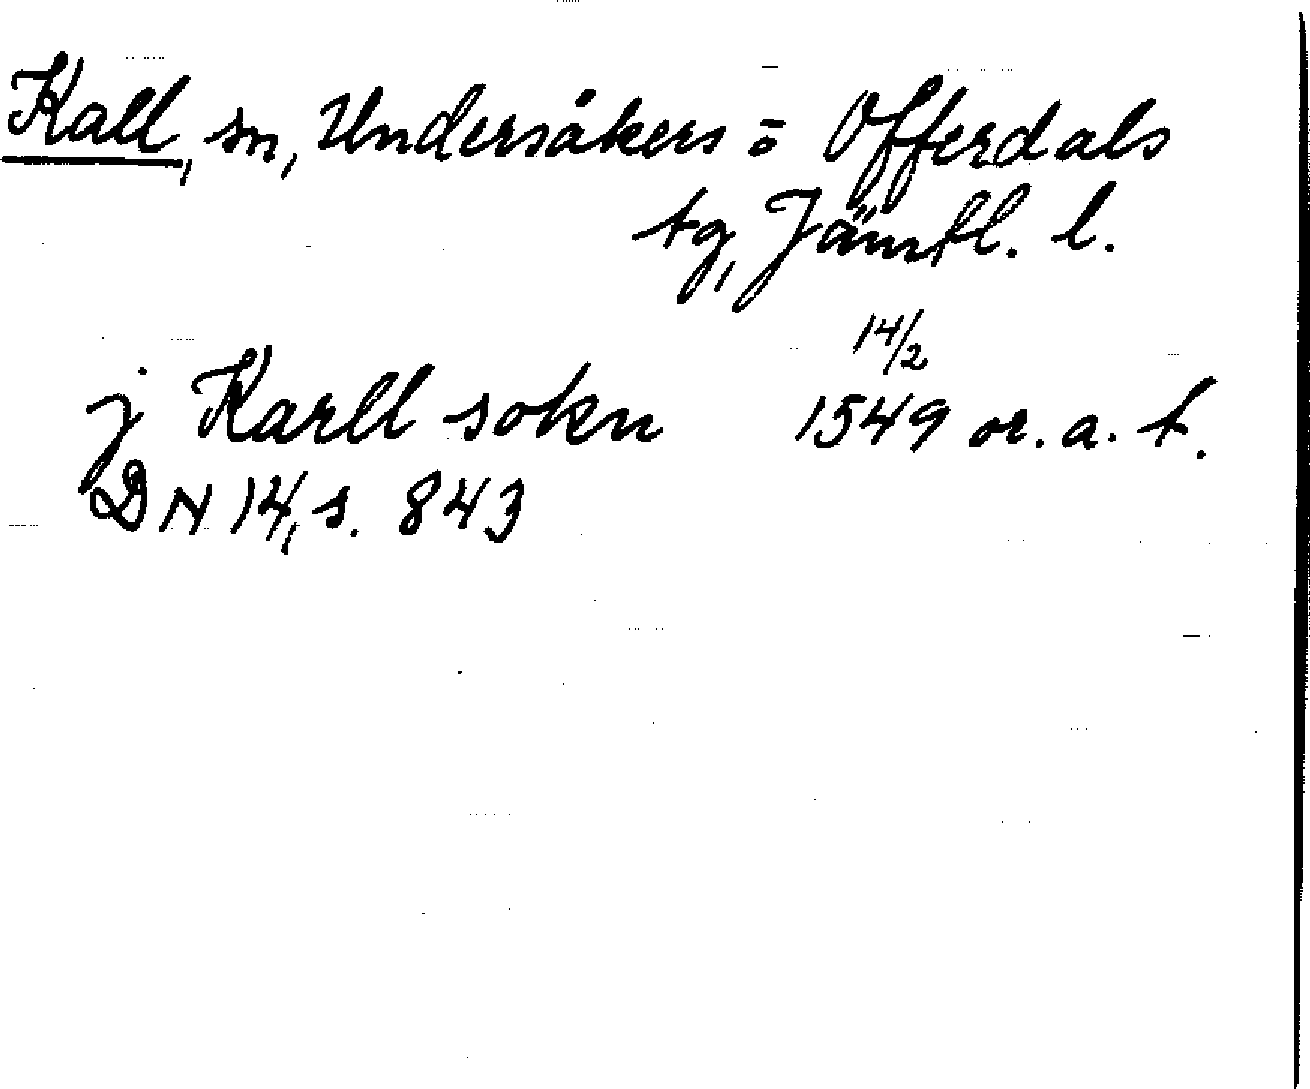 Kall, sn, Undersåkers o Offerdals
tg, Jämtl. l.
14/2
j Karll sokn 1549 or. a. t.
DN 14, s. 843